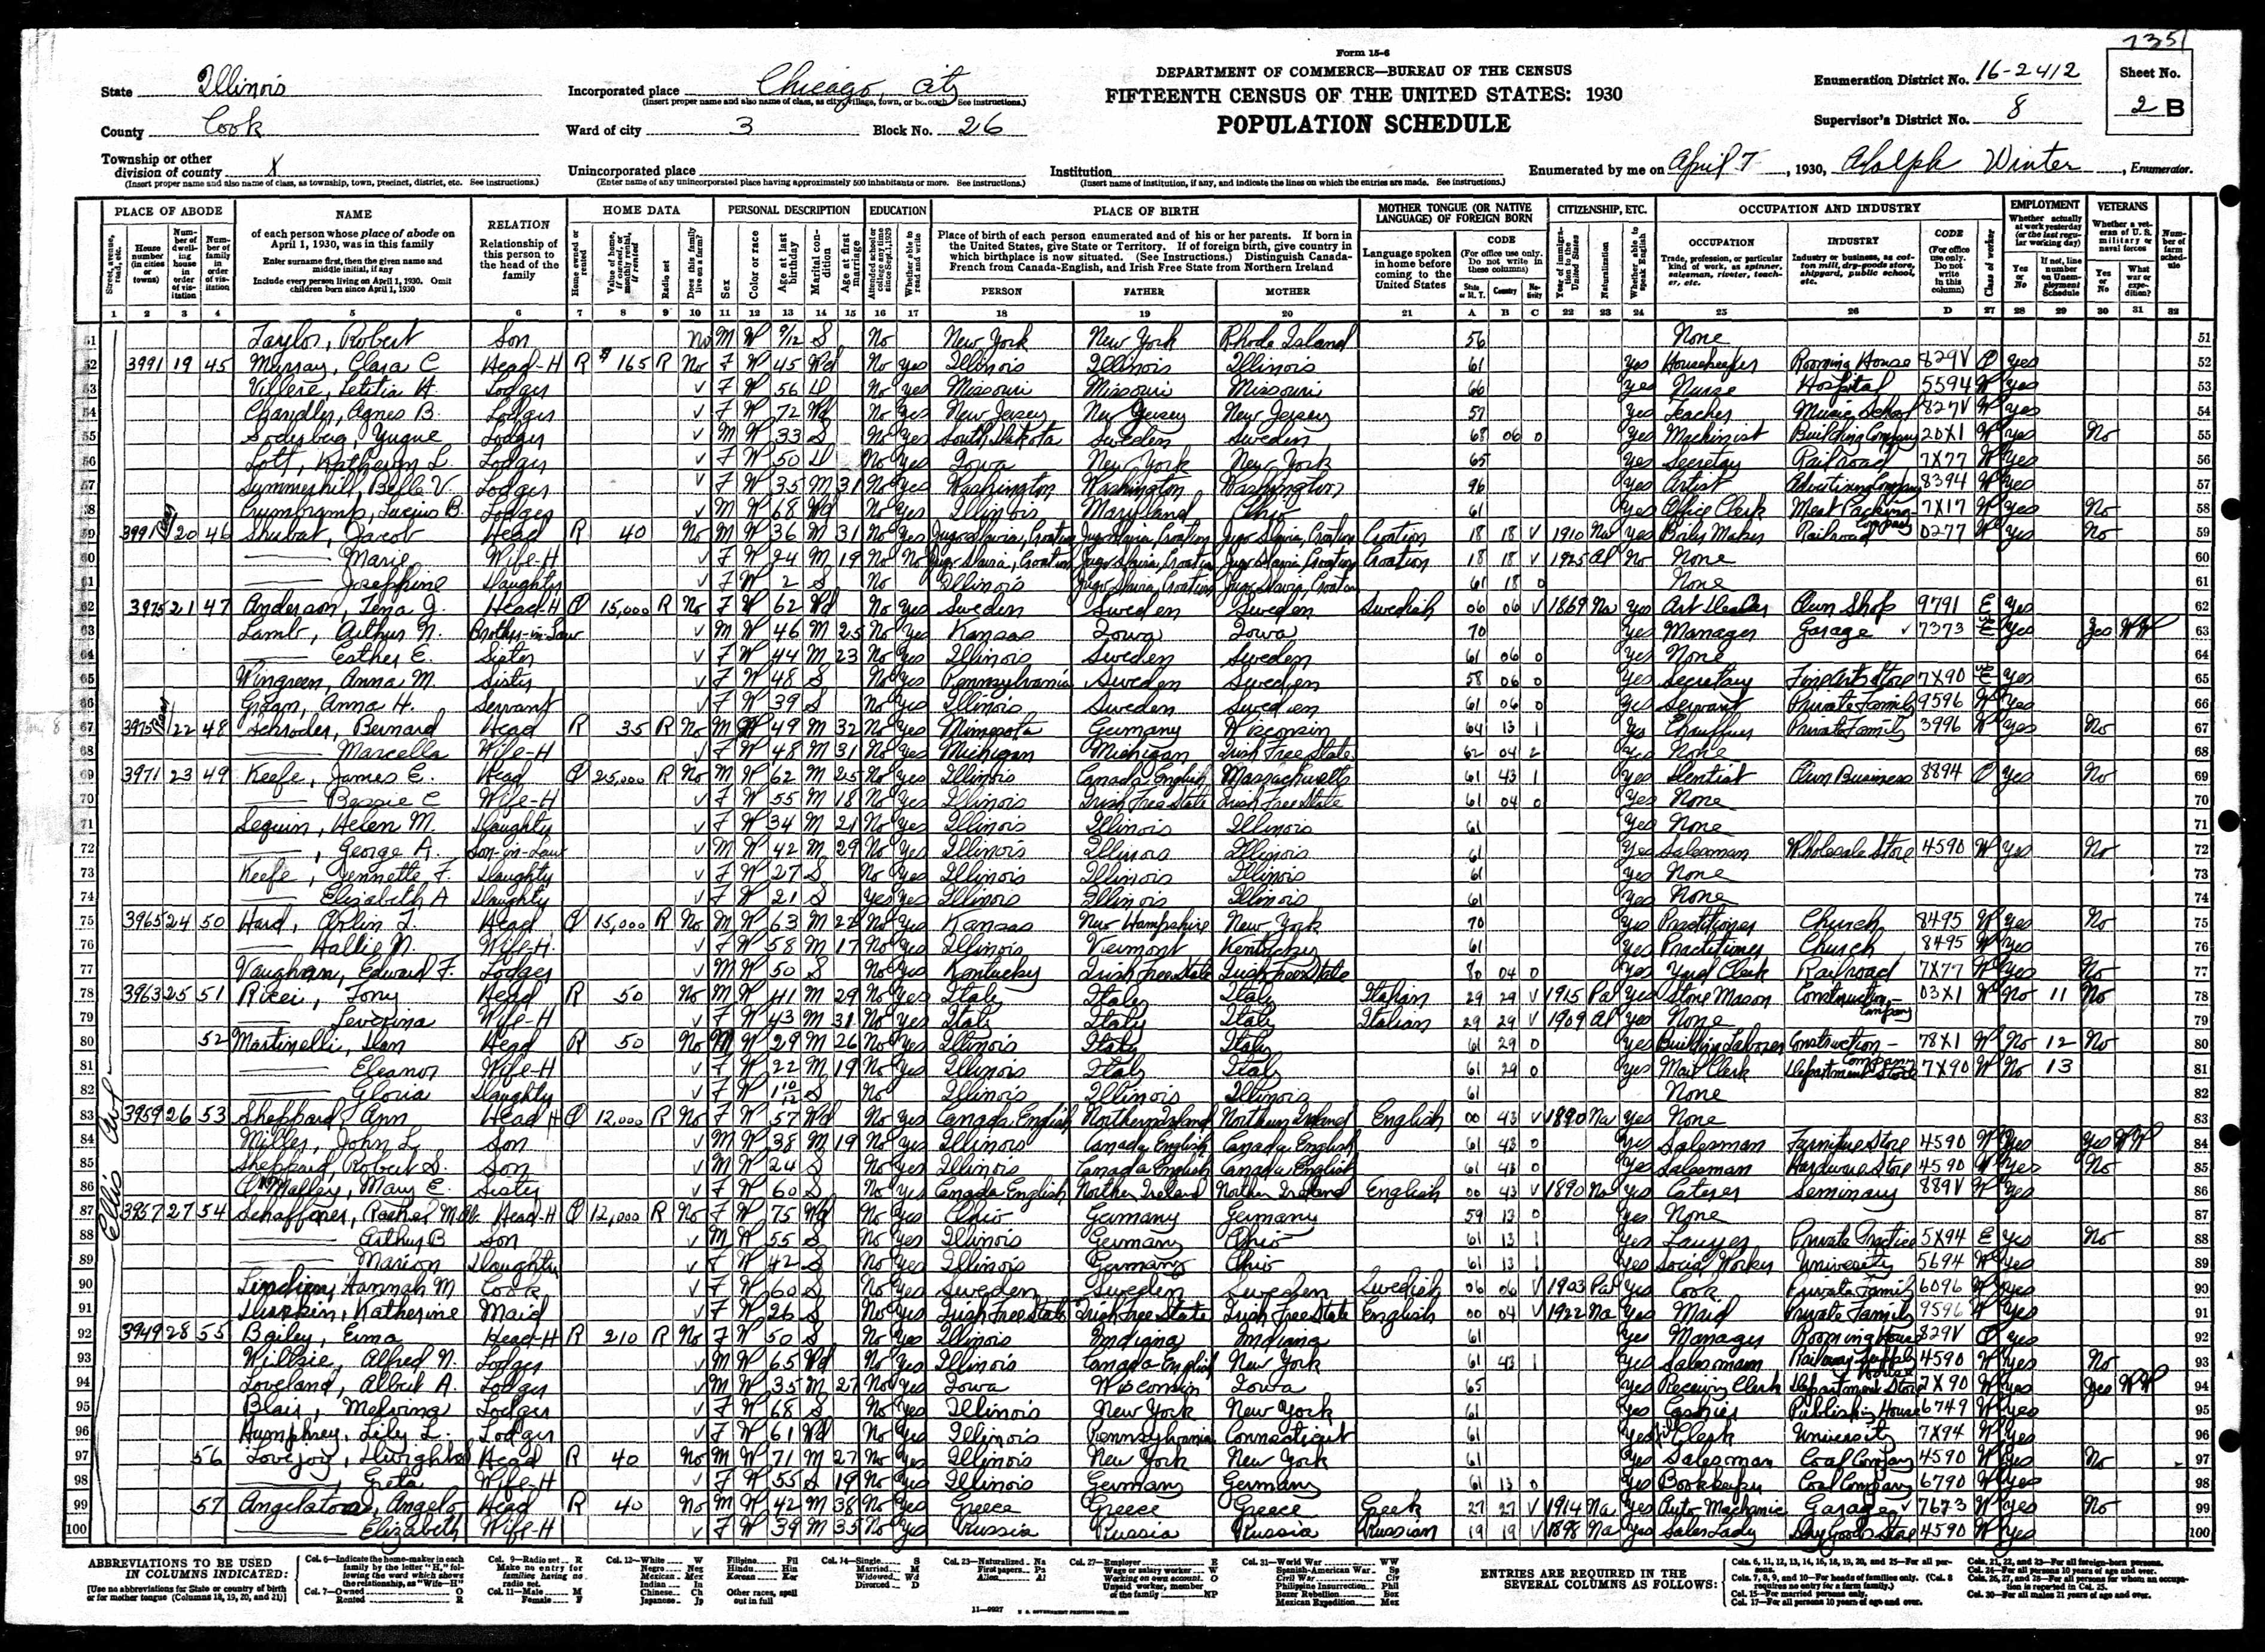 7351
Form 15-6
DEPARTMENT OF COMMERCE—BUREAU OF THE CENSUS
FIFTEENTH CENSUS OF THE UNITED STATES: 1930
POPULATION SCHEDULE
State Illinois
County Cook
Township or other division of county X
(Insert proper name and also name of class, as township, town, precinct, district, etc. See instructions.)
Incorporated place Chicago City
(Insert proper name and also name of class, as city, village, town, or borough. See instructions.)
Ward of city 3 Block No. 26
Unincorporated place
(Enter name of any unincorporated place having approximately 500 inhabitants or more. See instructions.)
Institution
(Insert name of institution, if any, and indicate the lines on which the entries are made. See instructions.)
Enumeration District No. 16-2412
Supervisor's District No. 8
Sheet No. 2 B
Enumerated by me on April 7, 1930, Adolph Winter, Enumerator.
PLACE OF ABODE NAME RELATION HOME DATA PERSONAL DESCRIPTION EDUCATION PLACE OF BIRTH MOTHER TONGUE (OR NATIVE LANGUAGE) OF FOREIGN BORN CITIZENSHIP, ETC. OCCUPATION AND INDUSTRY EMPLOYMENT VETERANS
PERSON FATHER MOTHER
1 2 3 4 5 6 7 8 9 10 11 12 13 14 15 16 17 18 19 20 21 A B C 22 23 24 25 26 D 27 28 29 30 31 32
Ellis Ave
51 Taylor, Robert Son No M W 9/12 S No New York New York Rhode Island 56 None 51
52 3991 19 45 Murray, Clara C Head-H R $165 R No F W 45 Wd No Yes Illinois Illinois Illinois 61 Yes Housekeeper Rooming House 829V O Yes 52
53 Villere, Letitia H. Lodger F W 56 D No Yes Missouri Missouri Missouri 66 Yes Nurse Hospital 5594 W Yes 53
54 Chandler, Agnes B. Lodger F W 72 Wd No Yes New Jersey New Jersey New Jersey 57 Yes Teacher Music School 827V W Yes 54
55 Yngve Lodger M W 33 S No Yes South Dakota Sweden Sweden 68 06 0 Yes Machinist Building Company 20X1 W Yes No 55
56 Lott, Katheryn L. Lodger F W 50 D No Yes Iowa New York New York 65 Yes Secretary Railroad 7X77 W Yes 56
57 Summerhill, Belle V. Lodger F W 35 M 31 No Yes Washington Washington Washington 96 Yes Artist Advertising Company 8394 W Yes 57
58 Lucius B. Lodger M W 68 Wd No Yes Illinois Maryland Ohio 61 Yes Office Clerk Meat Packing Company 7X17 W Yes No 58
59 3991 Rear 20 46 Shubat, Jacob Head R 40 No M W 36 M 31 No Yes Jugo Slavia, Croatian Jugo Slavia, Croatian Jugo Slavia, Croatian Croatian 18 18 V 1910 Na Yes Boiler Maker Railroad 0277 W Yes No 59
60 Marie Wife-H F W 24 M 19 No No Jugo Slavia, Croatian Jugo Slavia, Croatian Jugo Slavia, Croatian Croatian 18 18 V 1925 Al No None 60
61 Josephine Daughter F W 2 S No Illinois Jugo Slavia, Croatian Jugo Slavia, Croatian 61 18 0 None 61
62 3975 21 47 Anderson, Tena J. Head-H O 15,000 R No F W 62 Wd No Yes Sweden Sweden Sweden Swedish 06 06 V 1869 Na Yes Art Dealer Own Shop 9791 E Yes 62
63 Lamb, Arthur N. Brother-in-Law M W 46 M 25 No Yes Kansas Iowa Iowa 70 Yes Manager Garage 7373 E Yes Yes WW 63
64 Esther E. Sister F W 44 M 23 No Yes Illinois Sweden Sweden 61 06 0 Yes None 64
65 Wingreen, Anna M. Sister F W 48 S No Yes Pennsylvania Sweden Sweden 58 06 0 Yes Secretary Fine Art Store 7X90 E Yes 65
66 Anna H. Servant F W 39 S No Yes Illinois Sweden Sweden 61 06 0 Yes Servant Private Family 9596 W Yes 66
67 3975 Rear 22 48 Schroder, Bernard Head R 35 R No M W 49 M 32 No Yes Minnesota Germany Wisconsin 64 13 1 Yes Chauffeur Private Family 3996 W Yes No 67
68 Marcella Wife-H F W 48 M 31 No Yes Michigan Michigan Irish Free State 62 04 2 Yes None 68
69 3971 23 49 Keefe, James E. Head O 25,000 R No M W 62 M 25 No Yes Illinois Canada English Massachusetts 61 43 1 Yes Dentist Own Business 8894 O Yes No 69
70 Bessie C Wife-H F W 55 M 18 No Yes Illinois Irish Free State Irish Free State 61 04 0 Yes None 70
71 Seguin, Helen M. Daughter F W 34 M 21 No Yes Illinois Illinois Illinois 61 Yes None 71
72 , George A. Son-in-Law M W 42 M 29 No Yes Illinois Illinois Illinois 61 Yes Salesman Wholesale Store 4590 W Yes No 72
73 Keefe, Jennette F. Daughter F W 27 S No Yes Illinois Illinois Illinois 61 Yes None 73
74 Elizabeth A Daughter F W 21 S Yes Yes Illinois Illinois Illinois 61 Yes None 74
75 3965 24 50 Hard, Orlin L. Head O 15,000 R No M W 63 M 22 No Yes Kansas New Hampshire New York 70 Yes Practitioner Church 8495 W Yes No 75
76 Hallie N. Wife-H. F W 58 M 17 No Yes Illinois Vermont Kentucky 61 Yes Practitioner Church 8495 W Yes 76
77 Vaughan, Edward F. Lodger M W 50 S No Yes Kentucky Irish Free State Irish Free State 80 04 0 Yes Yard Clerk Railroad 7X77 W Yes No 77
78 3963 25 51 Ricci, Tony Head R 50 No M W 41 M 29 No Yes Italy Italy Italy Italian 29 29 V 1915 Pa Yes Stone Mason Construction Company 03X1 W No 11 No 78
79 Severina Wife-H F W 43 M 31 No Yes Italy Italy Italy Italian 29 29 V 1909 Al Yes None 79
80 52 Martinelli, Dan Head R 50 No M W 29 M 26 No Yes Illinois Italy Italy 61 29 0 Yes Building Laborer Construction Company 78X1 W No 12 No 80
81 Eleanor Wife-H F W 22 M 19 No Yes Illinois Italy Italy 61 29 0 Yes Mail Clerk Department Store 7X90 W No 13 81
82 Gloria Daughter F W 1 10/12 S No Illinois Illinois Illinois 61 None 82
83 3959 26 53 Sheppard, Ann Head H O 12,000 R No F W 57 Wd No Yes Canada English Northern Ireland Northern Ireland English 00 43 V 1890 Na Yes None 83
84 Miller, John L. Son M W 38 M 19 No Yes Illinois Canada English Canada English 61 43 0 Yes Salesman Furniture Store 4590 W Yes Yes WW 84
85 Sheppard, Robert S. Son M W 24 S No Yes Illinois Canada English Canada English 61 43 0 Yes Salesman Hardware Store 4590 W Yes No 85
86 O'Malley, Mary E. Sister F W 60 S No Yes Canada English Northern Ireland Northern Ireland English 00 43 V 1890 Na Yes Caterer Seminary 889V W Yes 86
87 3957 27 54 Schaffner, Rachel Head-H O 12,000 R No F W 75 Wd No Yes Ohio Germany Germany 59 13 0 Yes None 87
88 Arthur B Son M W 55 S No Yes Illinois Germany Ohio 61 13 1 Yes Lawyer Private Practice 5X94 E Yes No 88
89 Marion Daughter F W 42 S No Yes Illinois Germany Ohio 61 13 1 Yes Social Worker University 5694 W Yes 89
90 Hannah M Cook F W 60 S No Yes Sweden Sweden Sweden Swedish 06 06 V 1903 Pa Yes Cook Private Family 6096 W Yes 90
91 Durkin, Katherine Maid F W 26 S No Yes Irish Free State Irish Free State Irish Free State English 00 04 V 1922 Na Yes Maid Private Family 9596 W Yes 91
92 3949 28 55 Bailey, Erma Head-H R 210 R No F W 50 S No Yes Illinois Indiana Indiana 61 Yes Manager Rooming House 829V O Yes 92
93 Willsie, Alfred N. Lodger M W 65 Wd No Yes Illinois Canada English New York 61 43 1 Yes Salesman Railway Supply 4590 W Yes No 93
94 Loveland, Albert A. Lodger M W 35 M 27 No Yes Iowa Wisconsin Iowa 65 Yes Receiving Clerk Department Store 7X90 W Yes Yes WW 94
95 Blair, Melvina Lodger F W 68 S No Yes Illinois New York New York 61 Yes Cashier Publishing House 6749 W Yes 95
96 Humphrey, Lily L. Lodger F W 61 Wd No Yes Illinois Pennsylvania Connecticut 61 Yes Clerk University 7X94 W Yes 96
97 56 Lovejoy, Dwight Head R 40 No M W 71 M 27 No Yes Illinois New York New York 61 Yes Salesman Coal Company 4590 W Yes No 97
98 Greta Wife-H F W 55 19 No Yes Illinois Germany Germany 61 13 0 Yes Bookkeeper Coal Company 6790 W Yes 98
99 57 Angelo Head R 40 No M W 42 M 38 No Yes Greece Greece Greece Greek 27 27 V 1914 Na Yes Auto Mechanic Garage 7673 W Yes No 99
100 Elizabeth Wife-H F W 39 M 35 No Yes Russia Russia Russia Russian 19 19 V 1898 Na Yes Sales Lady Dry Goods Store 4590 W Yes 100
ABBREVIATIONS TO BE USED IN COLUMNS INDICATED:
[Use no abbreviations for State or country of birth or for mother tongue (Columns 18, 19, 20, and 21)]
Col. 6—Indicate the home-maker in each family by the letter "H," following the word which shows the relationship, as "Wife—H"
Col. 7—Owned O
Rented R
Col. 9—Radio set R
Make no entry for families having no radio set.
Col. 11—Male M
Female F
Col. 12—White W
Negro Neg
Mexican Mex
Indian In
Chinese Ch
Japanese Jp
Filipino Fil
Hindu Hin
Korean Kor
Other races, spell out in full
Col. 14—Single S
Married M
Widowed Wd
Divorced D
Col. 23—Naturalized Na
First papers Pa
Alien Al
Col. 27—Employer E
Wage or salary worker W
Working on own account O
Unpaid worker, member of the family NP
Col. 31—World War WW
Spanish-American War Sp
Civil War Civ
Philippine Insurrection Phil
Boxer Rebellion Box
Mexican Expedition Mex
ENTRIES ARE REQUIRED IN THE SEVERAL COLUMNS AS FOLLOWS:
Cols. 6, 11, 12, 13, 14, 16, 18, 19, 20, and 25—For all persons.
Cols. 7, 8, 9, and 10—For heads of families only. (Col. 8 requires no entry for a farm family.)
Col. 15—For married persons only.
Col. 17—For all persons 10 years of age and over.
Cols. 21, 22, and 23—For all foreign-born persons.
Col. 24—For all persons 10 years of age and over.
Cols. 26, 27, and 28—For all persons for whom an occupation is reported in Col. 25.
Col. 30—For all males 21 years of age and over.
11—9927 U. S. GOVERNMENT PRINTING OFFICE: 1930